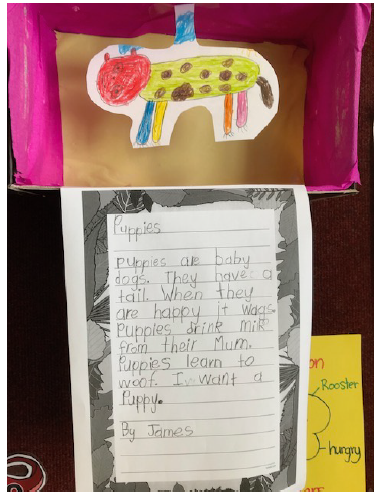 Puppies
puppies are baby
dogs. They have a
tail. When they
are happy it wags.
Puppies drink milk
from their Mum.
Puppies learn to
woof. I want a
Puppy.
By James
on
Rooster
hungry